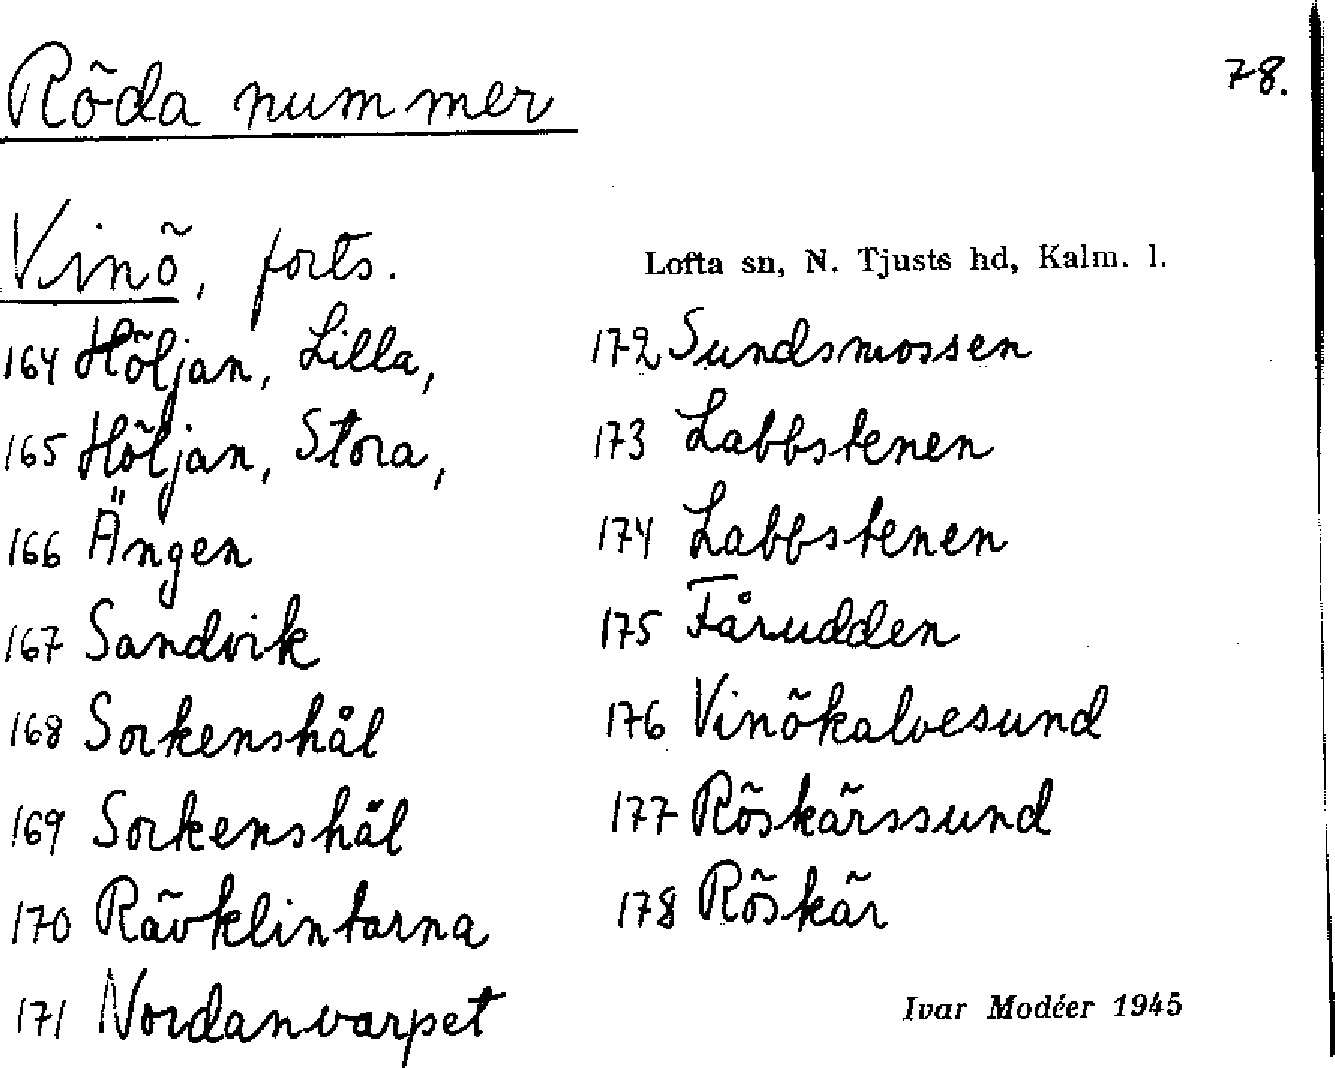 Röda nummer
78.
Vinö, forts.
Lofta sn, N. Tjusts hd, Kalm. l.
164 Höljan, Lilla,
165 Höljan, Stora,
166 Ängen
167 Sandvik
168 Sorkenshål
169 Sorkenshål
170 Rävklintarna
171 Nordanvarpet
172 Sundsmossen
173 Labbstenen
174 Labbstenen
175 Fårudden
176 Vinökalvesund
177 Röskärssund
178 Röskär
Ivar Modéer 1945